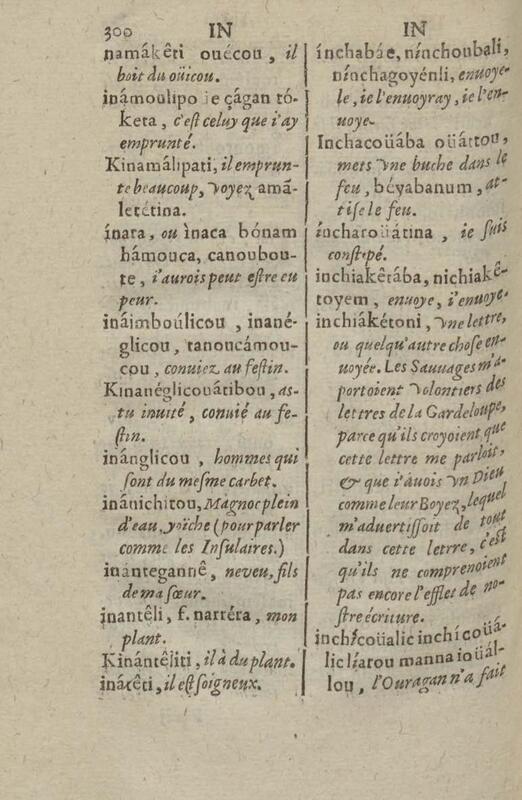 300 IN
namákêti ouécou, il
boit du oüicou.
inámoulipo ie çágan tó-
keta, c'est celuy que i'ay
emprunté.
Kinamálipati, il emprun-
te beaucoup, voyez amã-
letétina.
ínara, ou ìnaca bónam
hámouca, canoubou-
te, i'aurois peut estre eu
peur.
ináimboúlicou, inané-
glicou, tanoucámou-
cou, conuiez au festin.
Kinanéglicouátibou, as-
tu inuité, conuié au fe-
stin.
inánglicou, hommes qui
sont du mesme carbet.
inánichitou, Magnoc plein
d'eau, yoïche (pour parler
comme les Insulaires.)
inántegannê, neveu, fils
de ma sœur.
inantêli, f. narréra, mon
plant.
Kinántêliti, il à du plant.
inátêti, il est soigneux.
IN
ínchabáe, nínchoubali,
nínchagoyénli, enuoye-
le, ie l'enuoyray, ie l'en-
uoye.
Inchacoüába oüáttou,
mets vne buche dans le
feu, béyabanum, at-
tise le feu.
íncharoüátina, ie suis
constipé.
inchiakêtába, nichiakê-
toyem, enuoye, i'enuoye.
inchiákétoni, vne lettre,
ou quelqu'autre chose en-
uoyée. Les Sauuages m'a-
portoient volontiers des
lettres de la Gardeloupe,
parce qu'ils croyoient que
cette lettre me parloit,
& que i'àuois vn Dieu
comme leur Boyez, lequel
m'aduertissoit de tout
dans cette letrre, c'est
qu'ils ne comprenoient
pas encore l'efflet de no-
stre écriture.
inchícoüalic inchícoüá-
lic líatou manna ioüál-
lou, l'Ouragan n'a fait